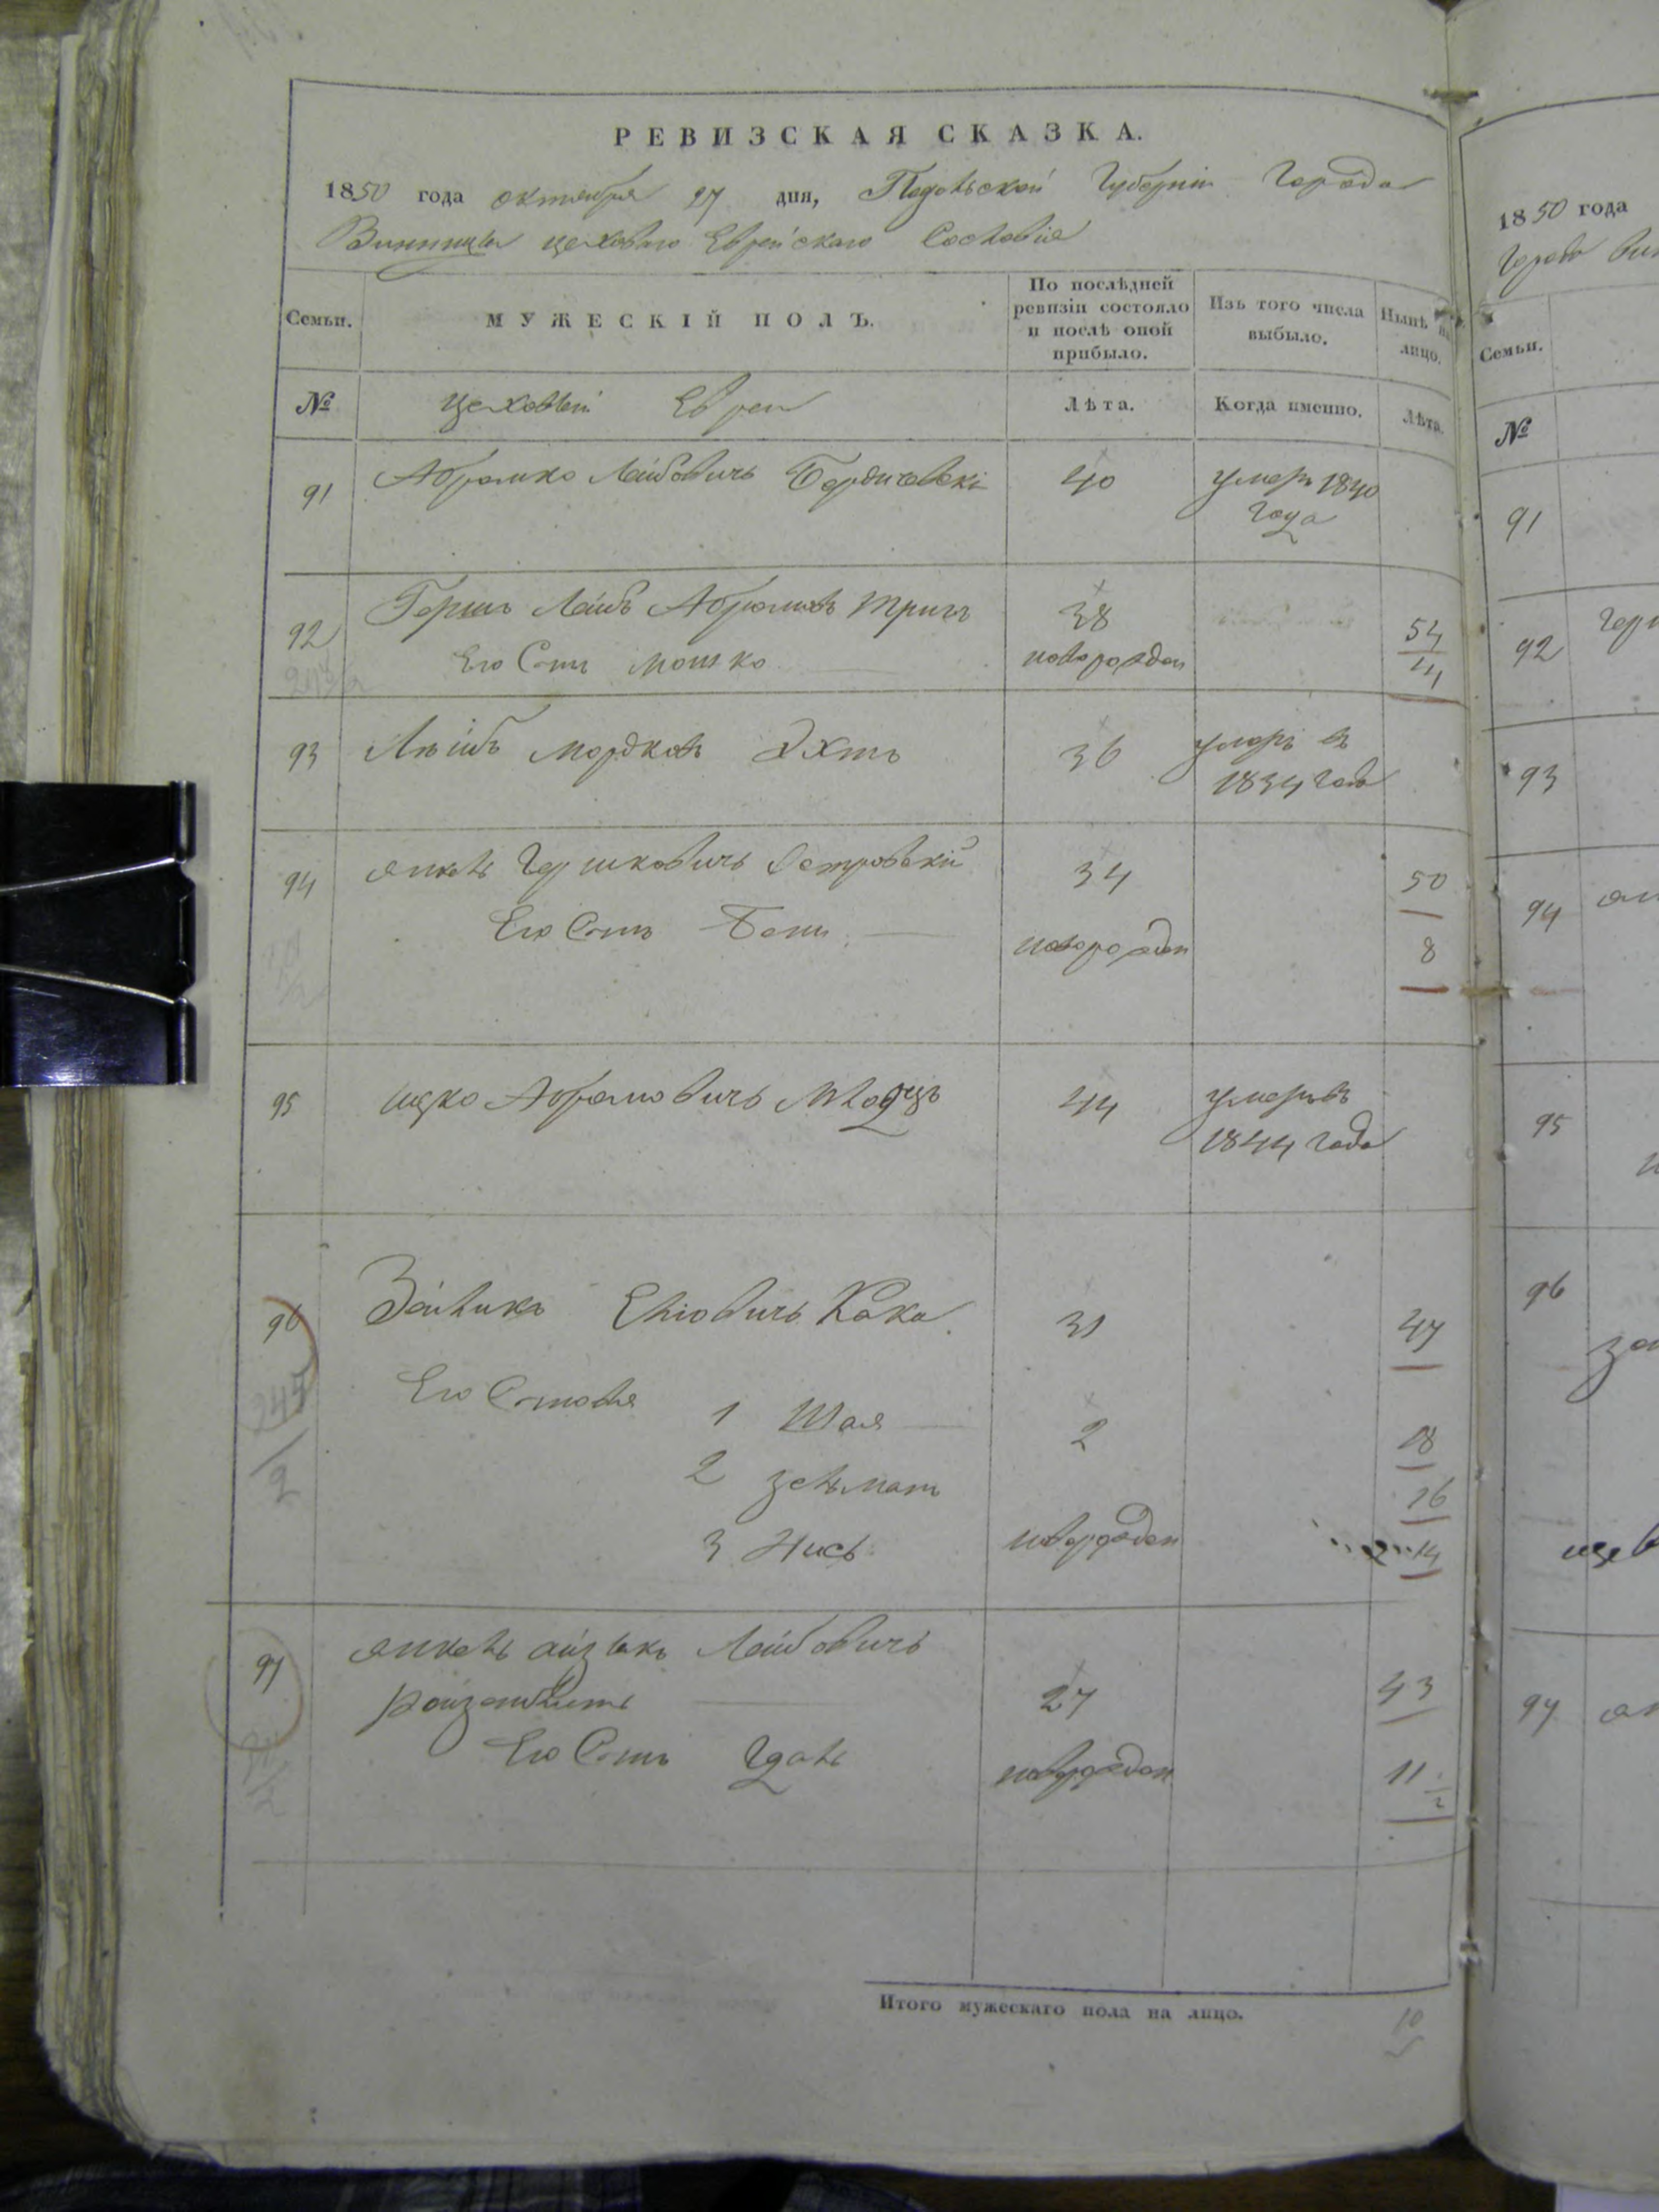 РЕВИЗСКАЯ СКАЗКА.
1850 года октября 27 дня, Подольской Губерніи Города
Винницы цеховаго Еврейскаго Сословія
Семьи. МУЖЕСКІЙ ПОЛЪ. По послѣдней ревизіи состояло и послѣ оной прибыло. Изъ того числа выбыло. Нынѣ на лицо.
№ Цеховыи Евреи Лѣта. Когда именно. Лѣта.
91 Абрамко Лейбовичъ Бердичевскі 40 умеръ 1840
года
92 Гершъ Лейбъ Абрамов Тригъ 38 54
Его Сынъ Мошко новорожден 4
93 Лейбъ Мордков Эхтъ 36 умеръ въ
1834 году
94 Янкель Гершковичъ Островскій 34 50
Его Сынъ Бень новорожден 8
95 Ицко Абрамовичъ 44 умеръ въ
1844 года
96 Зейликъ Еліовичъ Кака 31 47
Его Сыновья 1 Шая 2 18
2 Зельман 16
3 Нись новорожден 14
97 Янкель Айзыкъ Лейбовичъ
27 43
Его Сынъ Удаль новорожден 11 1/2
Итого мужескаго пола на лицо. 10
1850 года
Города Вин
Семьи.
№
91
92 Герш
93
94 Ян
95
96
97